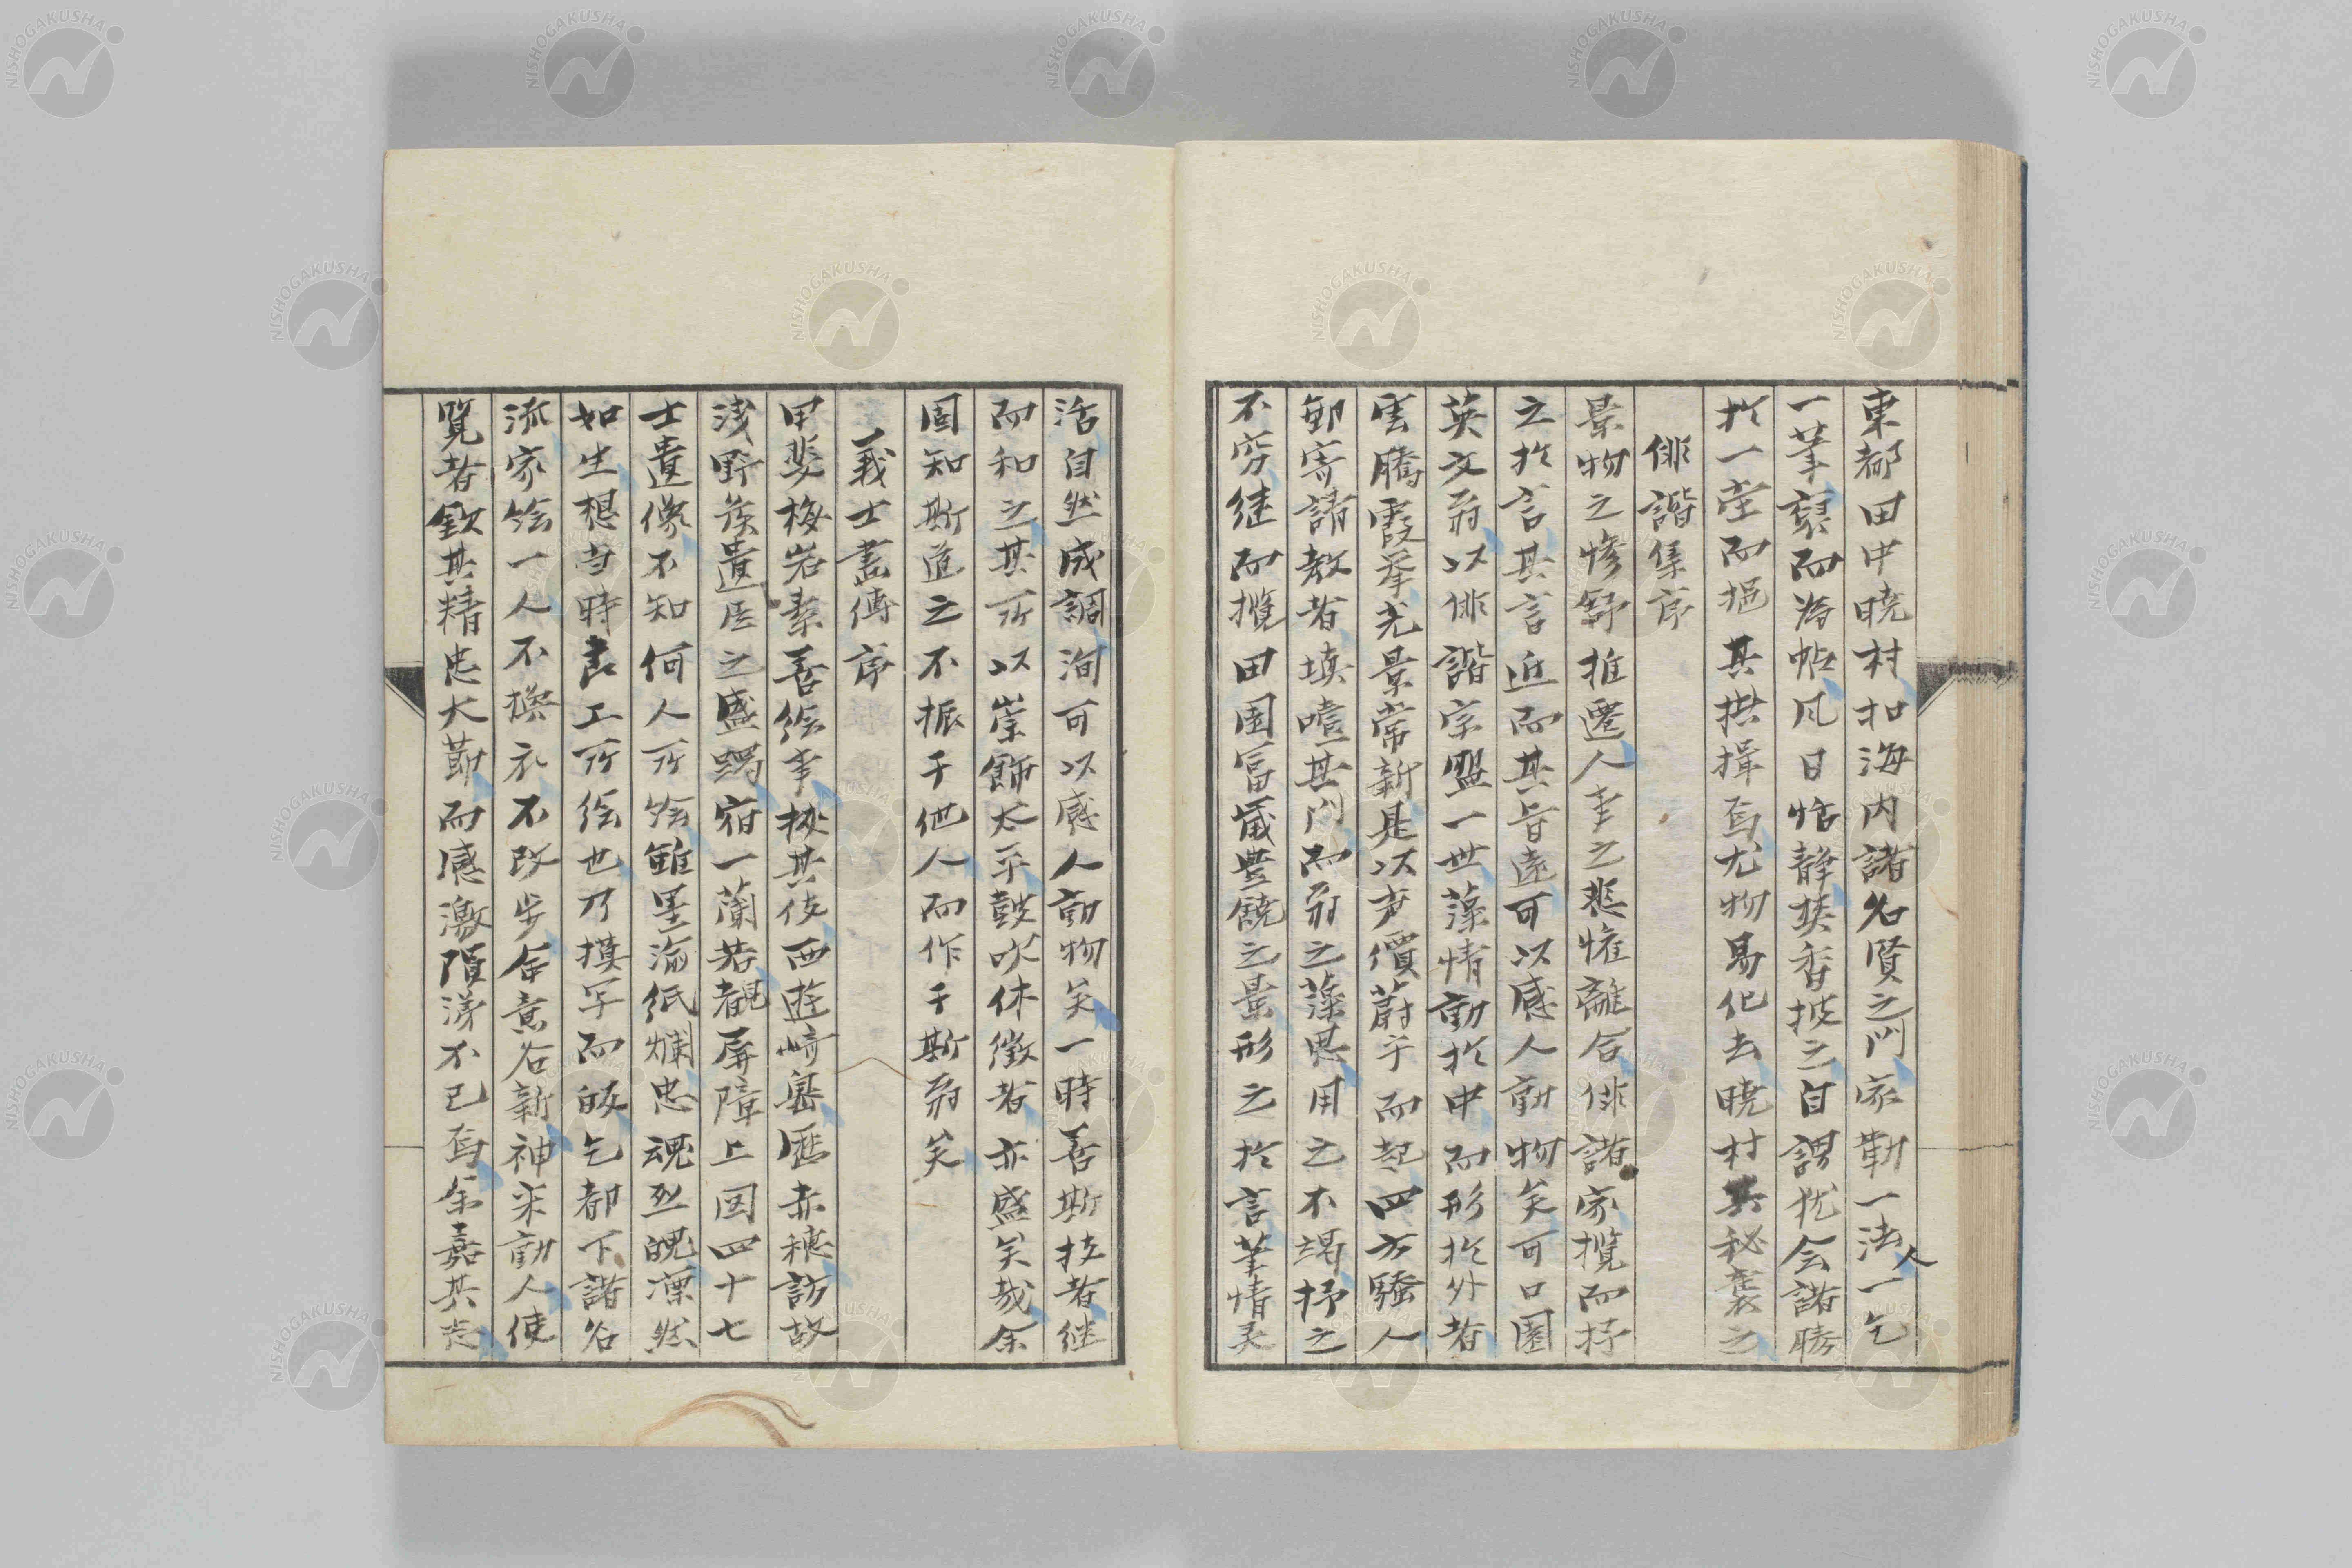 東都田中暁村扣海内諸名賢之門家勒一法人一乞
一筆裒而為帖凡日恬静焚香披之自謂犹会諸勝
於一堂而挹其拱揖焉尤物易化去暁村其秘袠之
俳諧集序
景物之惨舒推遷人事之悲懽離合俳諧家攬而抒
之於言其言近而其旨遠可以感人動物矣可口園
英文翁以俳諧宗盟一世藻情動於中而形於外者
雲騰霞挙光景常新是以声價蔚乎而起四方騒人
郵寄請教者填噎其門而翁之藻思用之不竭抒之
不穷継而攬田園冨歳豊饒之景形之於言筆情灵
活自然成調洵可以感人動物矣一時善斯技者継
而和之其所以崇餙太平鼓吹休徴者亦盛矣哉余
固知斯道之不振于他人而作于斯翁矣
義士畵傳序
甲斐梅岩素善绘事挾其伎西遊﨑罨歴赤穂訪故
浅野矦遺臣之盛躅宿一蘭若覩屏障上図四十七
士遺像不知何人所绘雖墨渝紙爛忠魂烈魄凛然
如生想当時良工所绘也乃摸写而皈乞都下諸名
流家绘一人不換衣不改步命意名新神采動人使
覧者欽其精忠大莭而感激隕涕不已焉余嘉其志